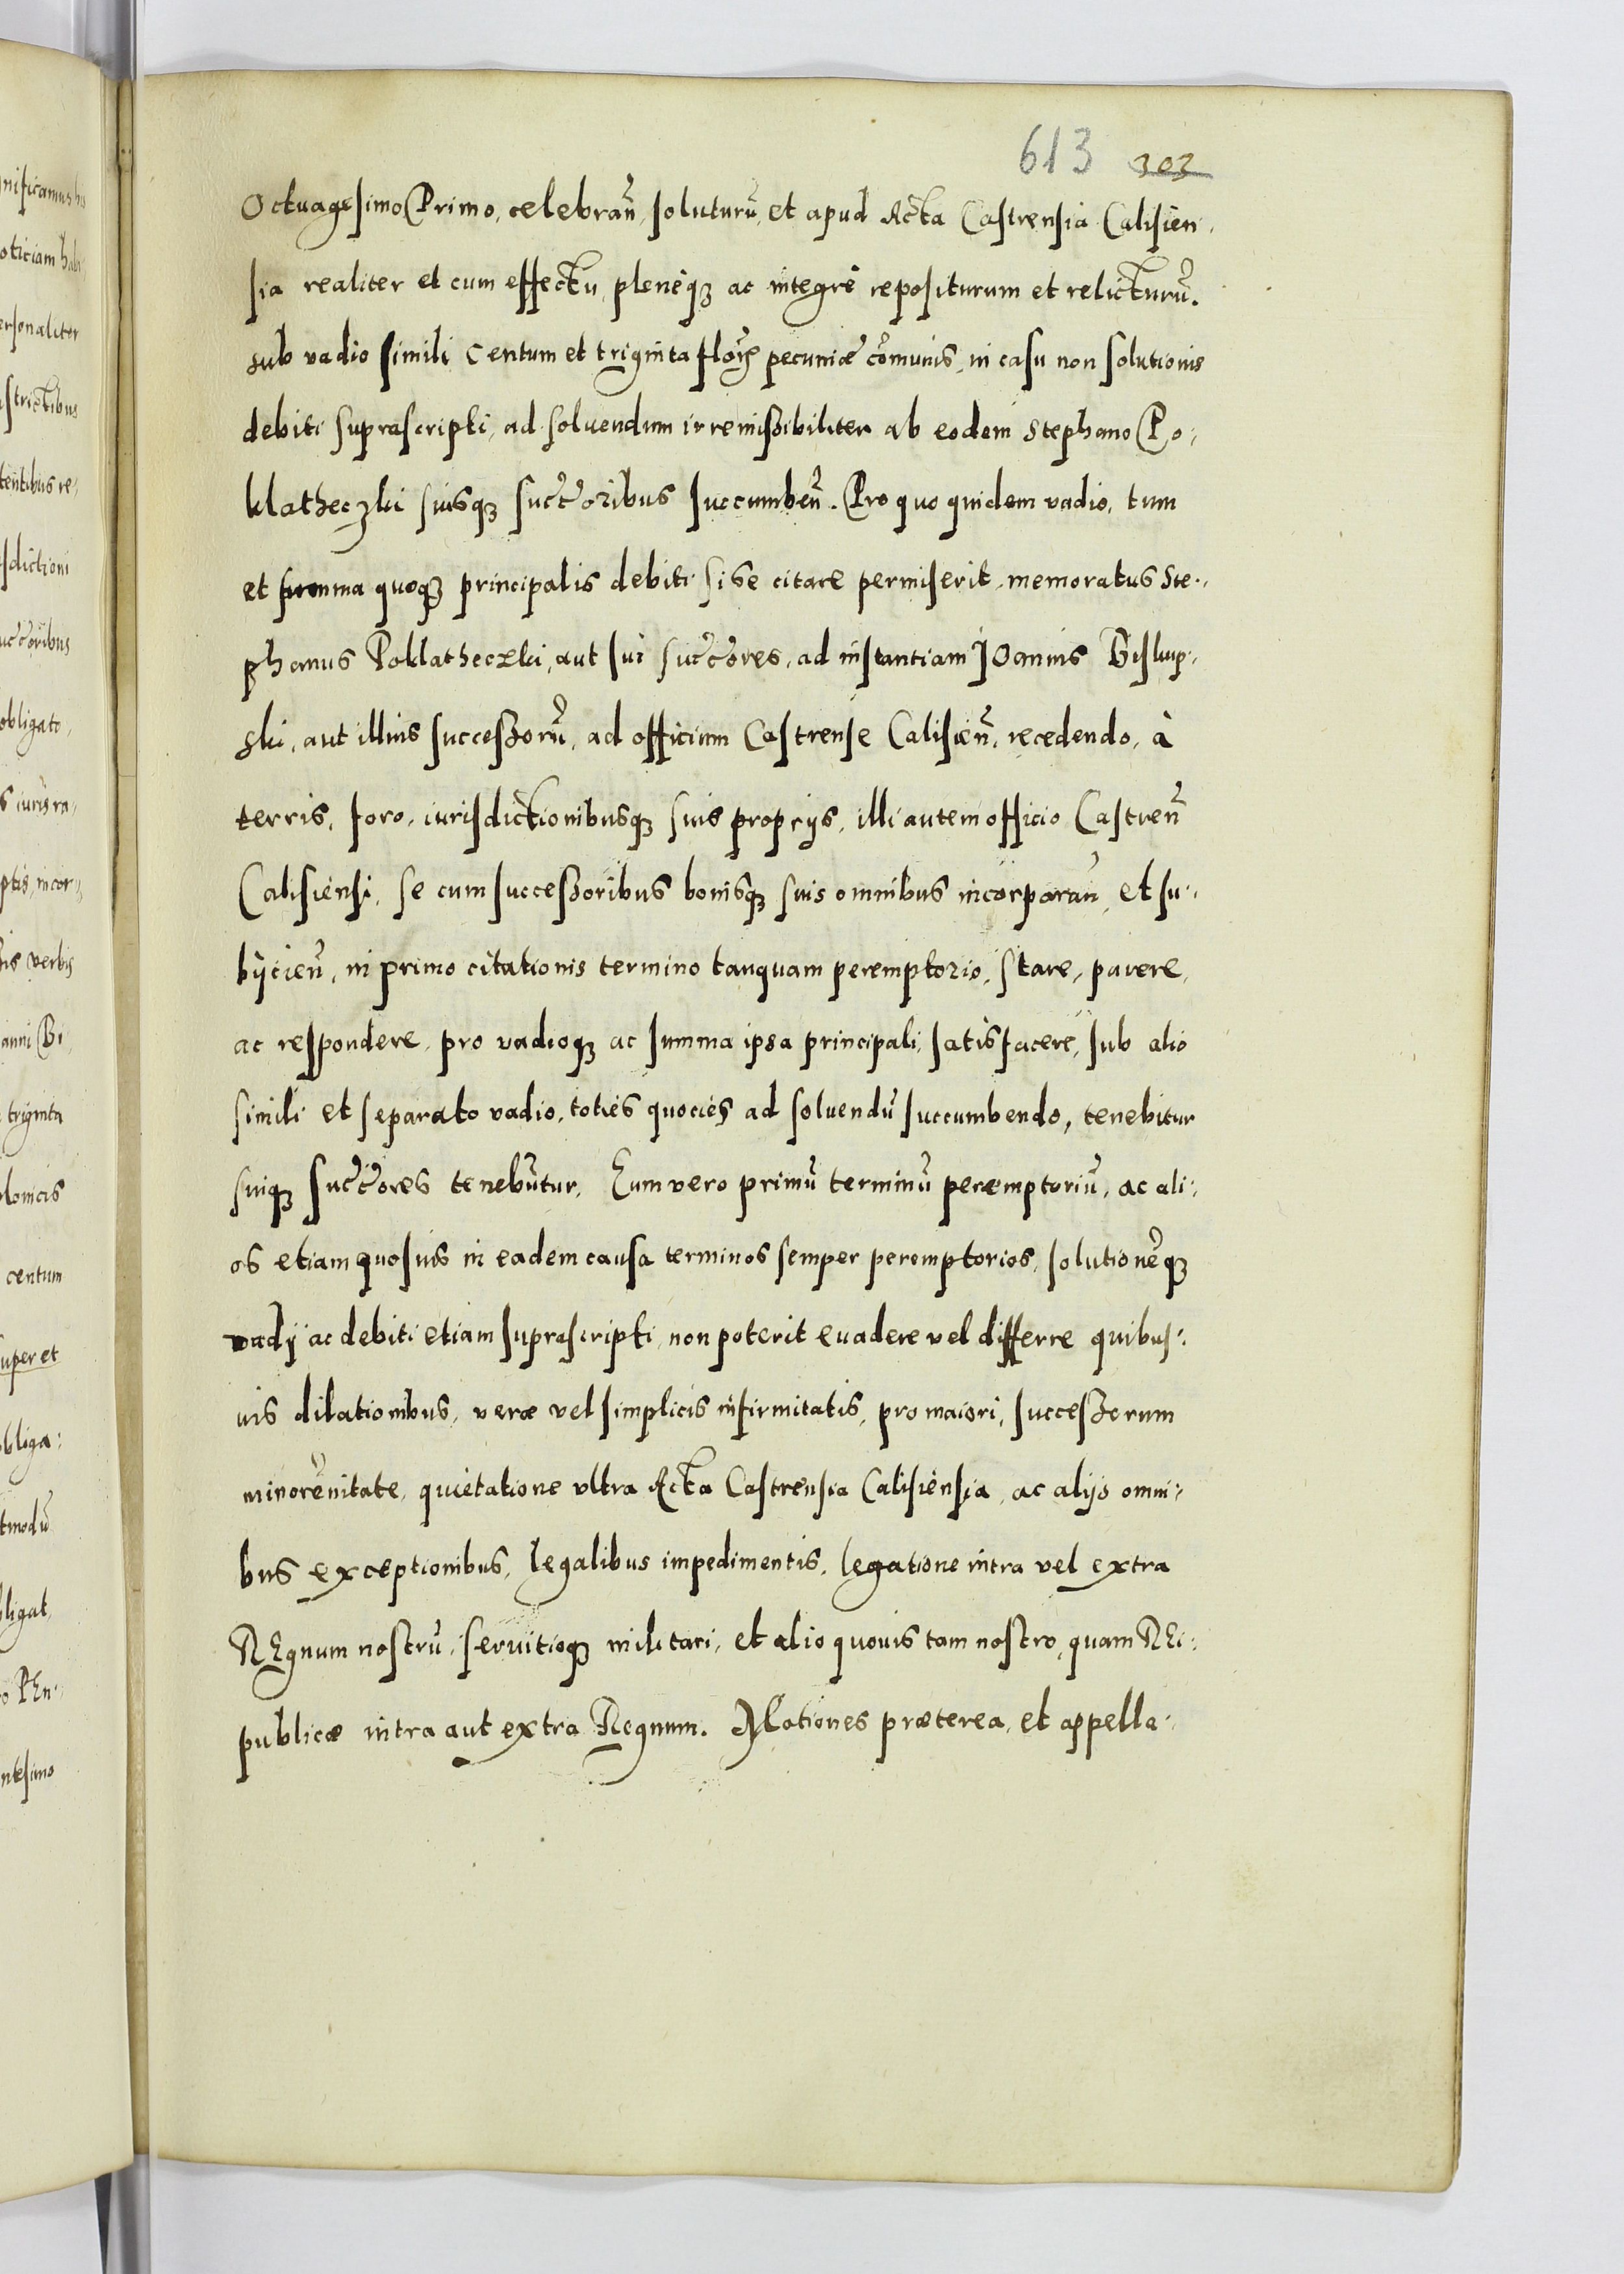 613 303
Octuagesimo Primo, celebrañ, soluturũ, et apud Acta Castrensia Calisien,
sia realiter et cum effectu, pleneqз ac integrè repositurum et relicturũ.
sub vadio simili Centum et triginta pecuniæ cõmunis, in casu non solutionis
debiti suprascripti, ad soluendum irremissibiliter ab eodem Stephano Po,
klatheczki suisqз succ̃oribus succumbeñ. Pro quo quidem vadio, tum
et summa quoqз principalis debiti si se citare permiserit, memoratus Ste,
phanus Poklatheczki, aut sui succ̃ores, ad instantiam Joannis Biskup,
ski, aut illius successorũ, ad officium Castrense Calisieñ, recedendo, à
terris, foro, iurisdictionibusqз suis proprijs, illi autem officio Castreñ
Calisiensi, se cum successoribus bonisqз suis omnibus incorporañ, et su,
bijcieñ, in primo citationis termino tanquam peremptorio, stare, parere,
ac respondere, pro vadioqз ac summa ipsa principali, satisfacere, sub alio
simili et separato vadio, toties quocies ad soluendũ succumbendo, tenebitur
suiqз succ̃ores tenebũtur. Eum vero primũ terminũ peremptoriũ, ac ali,
os etiam quosuis in eadem causa terminos semper peremptorios, solutionẽqз
vadij ac debiti etiam suprascripti, non poterit euadere vel differre quibus,
uis dilationibus, veræ vel simplicis infirmitatis, pro maiori, successorum
minorẽnitate, quietatione vltra Acta Castrensia Calisiensia, ac alijs omni,
bus exceptionibus, legalibus impedimentis, legatione intra vel extra
REgnum nostrũ, seruitioqз militari, et alio quouis tam nostro, quam REi,
publicæ intra aut extra Regnum. Motiones præterea, et appella,
nificamus
oticiam
ersonaliter
strictibus
tentibus re,
sdictioni
ucc̃oribus
obligato,
s iuris ra,
ptis, incor,
is verbis
anni Bi,
triginta
lonicis
centum
super et
bliga:
tmodũ
bligat,
ntesimo